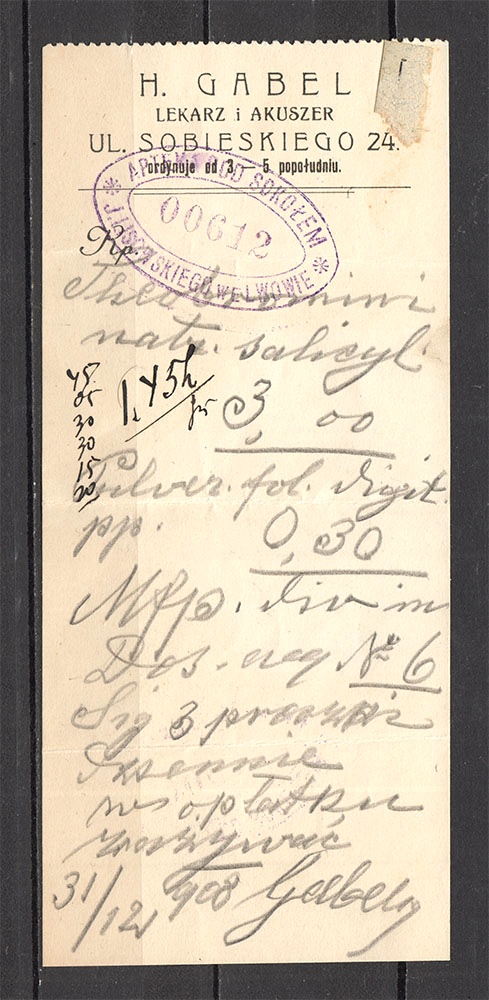 H. GABEL
LEKARZ i AKUSZER
UL. SOBIESKIEGO 24.
ordynuje od 3 5 popołudniu.
APTEKA POD SOKOŁEM
00612
J. LISOWSKIEGO WE LWOWIE
Rp.
natr. salicyl.
3,00
45
05
30
30
15
20
1,45h
Pulver. fol. digit.
pp. 0,30
Mfp. div in
Dos. aeq № 6
Sig 3 proszki
dziennie
w opłatku
zażywać
31/12 908 Gabel